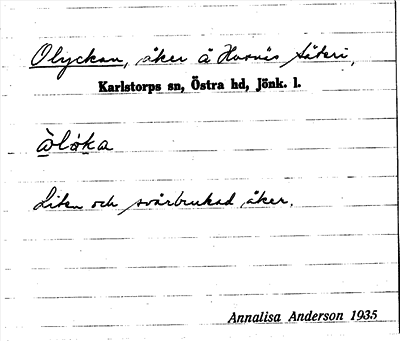 Olyckan, åker å Hornås säteri,
Karlstorps sn, Östra hd, Jönk. l.
Liten och svårbrukad åker.
Annalisa Anderson 1935